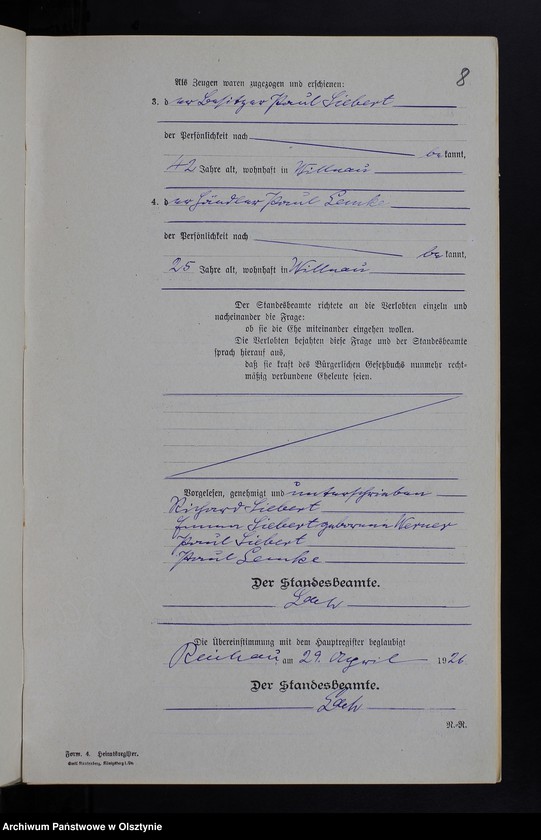 8
Als Zeugen waren zugezogen und erschienen:
3. der Besitzer Paul Siebert
der Persönlichkeit nach
bekannt,
42 Jahre alt, wohnhaft in Willnau
4. der Händler Paul Lemke
der Persönlichkeit nach
bekannt,
25 Jahre alt, wohnhaft in Willnau
Der Standesbeamte richtete an die Verlobten einzeln und
nacheinander die Frage:
ob sie die Ehe miteinander eingehen wollen.
Die Verlobten bejahten diese Frage und der Standesbeamte
sprach hierauf aus,
daß sie kraft des Bürgerlichen Gesetzbuchs nunmehr recht-
mäßig verbundene Eheleute seien.
Vorgelesen, genehmigt und unterschrieben
Richard Siebert
Emma Siebert geborene Werner
Paul Siebert
Paul Lemke
Der Standesbeamte.
Die Übereinstimmung mit dem Hauptregister beglaubigt
am 29. April 1926
Der Standesbeamte.
N.-R.
Form. 4. Heiratsregister.
Emil Rautenberg, Königsberg i. Pr.
Archiwum Państwowe w Olsztynie